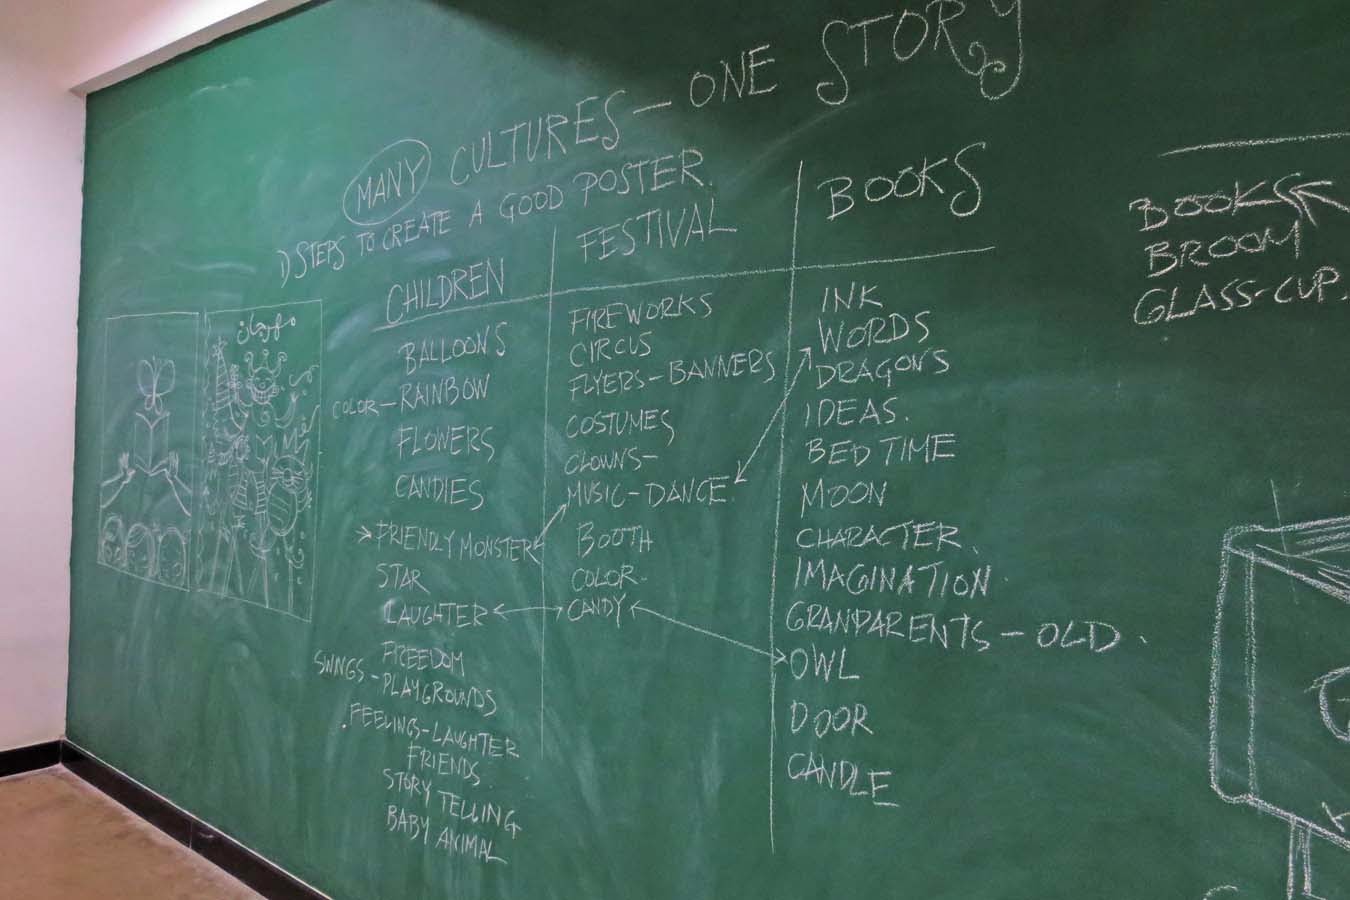 MANY CULTURES - ONE STORY
1) STEPS TO CREATE A GOOD POSTER.
CHILDREN
BALLOONS
COLOR - RAINBOW
FLOWERS
CANDIES
FRIENDLY MONSTER
STAR
LAUGHTER
FREEDOM
SWINGS - PLAYGROUNDS
FEELINGS - LAUGHTER
FRIENDS
STORY TELLING
BABY ANIMAL
FESTIVAL
FIREWORKS
CIRCUS
FLYERS - BANNERS
COSTUMES
CLOWNS -
MUSIC - DANCE
BOOTH
COLOR -
CANDY
BOOKS
INK
WORDS
DRAGONS
IDEAS.
BED TIME
MOON
CHARACTER
IMAGINATION
GRANPARENTS - OLD
OWL
DOOR
CANDLE
BOOKS
BROOM
GLASS-CUP.